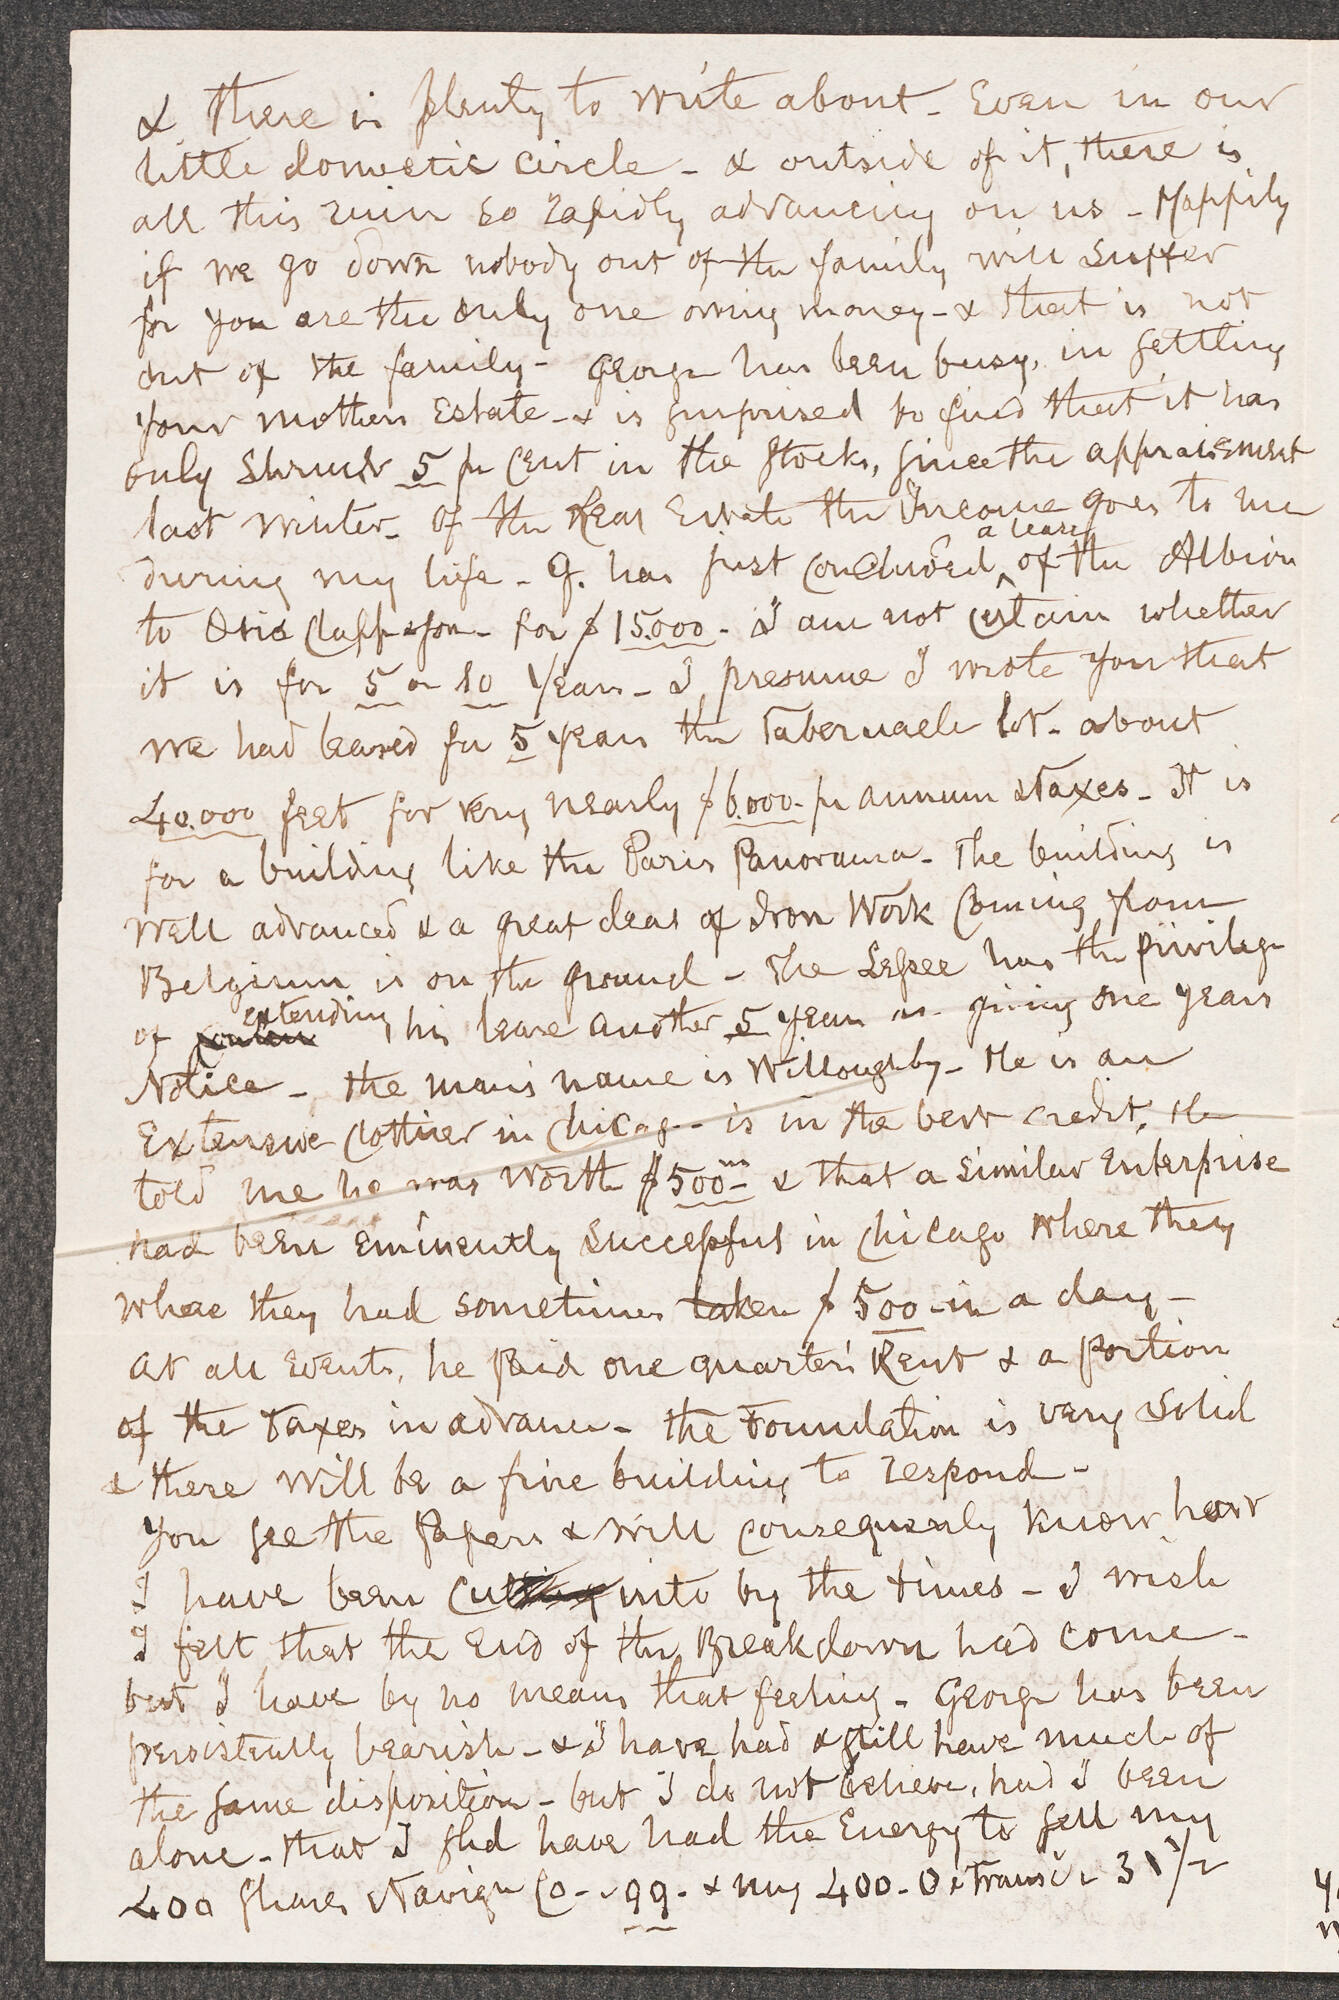 & there is plenty to write about - Even in our
little domestic circle - & outside of it, there is
all this ruin so rapidly advancing on us - Happily
if we go down nobody out of the family will suffer
for you are the only one owing money - & that is not
out of the family - George has been busy, in settling
your mothers Estate - & is surprised to find that it has
only shrunk 5 pr Cent in the stocks, since the appraisement
last winter - Of the Real Estate the Income goes to me
during my life - G. has just concluded a lease of the Albion
to Otis Clapp & son - for $15.000 - I am not certain whether
it is for 5 or 10 Years - I presume I wrote you that
we had leased for 5 years the Tabernacle lot - about
40.000 feet for very nearly $6.000 - pr annum & Taxes - It is
for a building like the Paris Panorama - The building is
well advanced & a great deal of Iron Work coming from
Belgium is on the ground - The Lessee has the privilege
of extending his lease another 5 year on giving one years
Notice - the man's name is Willoughby - He is an
Extensive Clothier in Chicago - is in the best credit. He
told me he was worth $500 m & that a similar Enterprise
had been Eminently successful in Chicago where they
where they had sometimes taken $500 - in a day -
At all Events, he paid one quarter's Rent & a portion
of the taxes in advance - the Foundation is very solid
& there will be a fine building to respond -
You see the Papers & will consequently know how
I have been cut into by the times - I wish
I felt that the End of the Breakdown had come -
but I have by no means that feeling - George has been
persistently bearish - & I have had & still have much of
the same disposition - but I do not believe, had I been
alone - that I shd have had the Energy to sell my
400 shares Navign Co - 99 - & my 400 - O & Trans 31 1/2